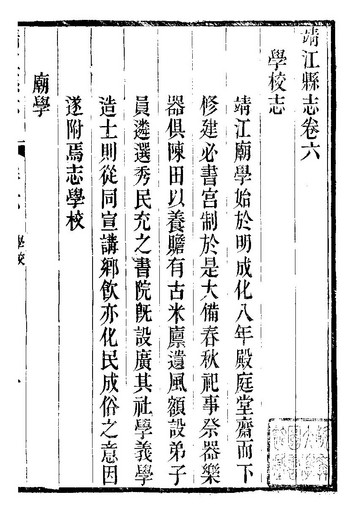 靖江縣志卷六
學校志
靖江廟學始於明成化八年殿庭堂齋而下
修建必書宮制於是大備春秋祀事祭器樂
器俱陳田以養贍有古米廩遺風額設弟子
員遴選秀民充之書院旣設廣其社學義學
造士則從同宣講鄉飲亦化民成俗之意因
遂附焉志學校
廟學
學校